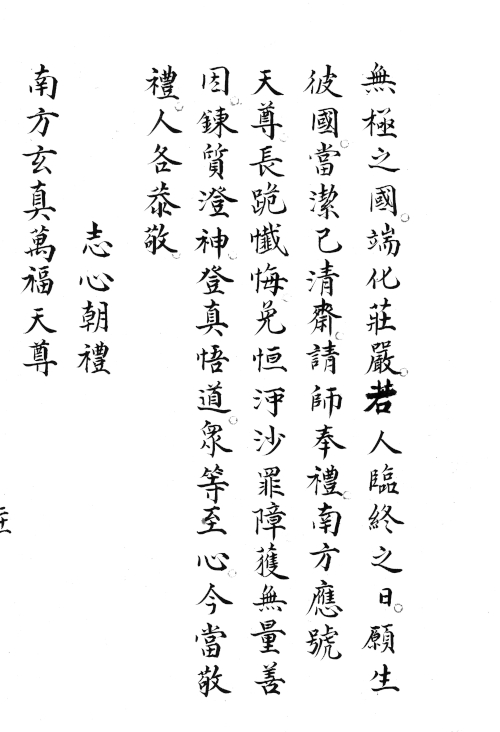 無極之國。端化莊嚴。若人臨終之日。願生
彼國。當潔己清齋。請師奉禮。南方應號
天尊長跪懺悔免恒河沙罪障獲無量善
因。鍊質澄神。登真悟道。眾等至心。今當敬
禮。人各恭敬。
志心朝禮
南方玄真萬福天尊